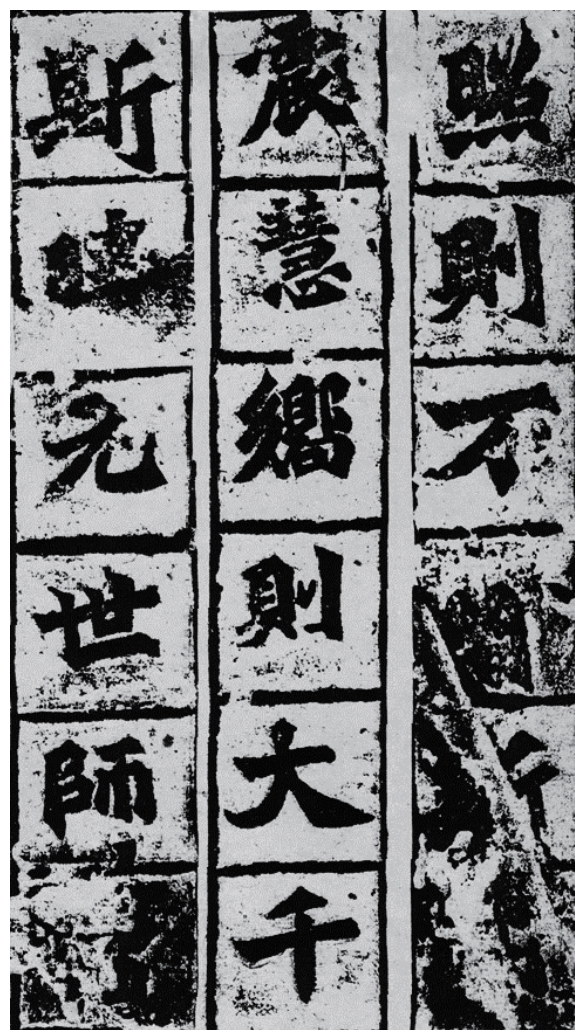 照則万
震慧嚮則大千
斯元世師